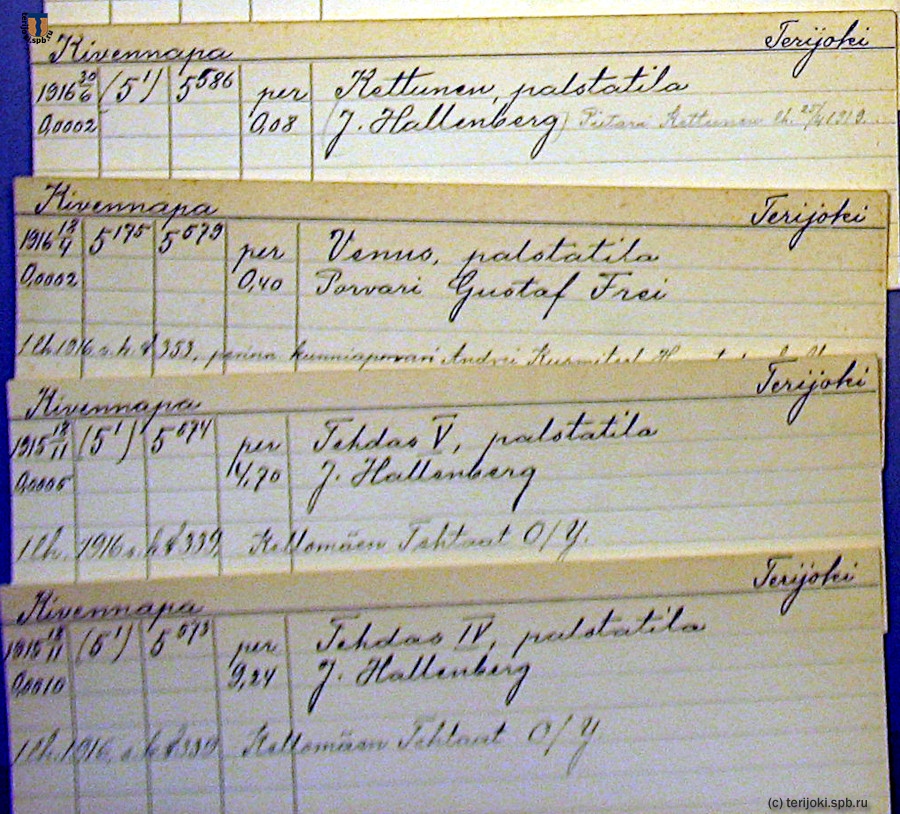 terijoki.spb.ru
Kivennapa Terijoki
1916 30/6 (5¹) 5⁵⁸⁶ per Kettunen, palstatila
0,0002 0,08 (J. Hallenberg) Pietari Kettunen lh. 25/4 1919.
Kivennapa Terijoki
1916 18/4 5¹⁷⁵ 5⁵⁷⁹ per Venus, palstatila
0,0002 0,40 Porvari Gustaf Frei
1 lh. 1916 s. h. § 353, kunniaporvari Andrei
Kivennapa Terijoki
1915 18/11 (5¹) 5⁵⁷⁴ per Tehdas V, palstatila
0,0005 4,70 J. Hallenberg
1 lh. 1916 s. h. § 339 Kellomäen Tehtaat O/Y.
Kivennapa Terijoki
1915 18/11 (5¹) 5⁵⁷³ per Tehdas IV, palstatila
0,0010 9,24 J. Hallenberg
1 lh. 1916, s. h. § 339 Kellomäen Tehtaat O/Y.
(c) terijoki.spb.ru